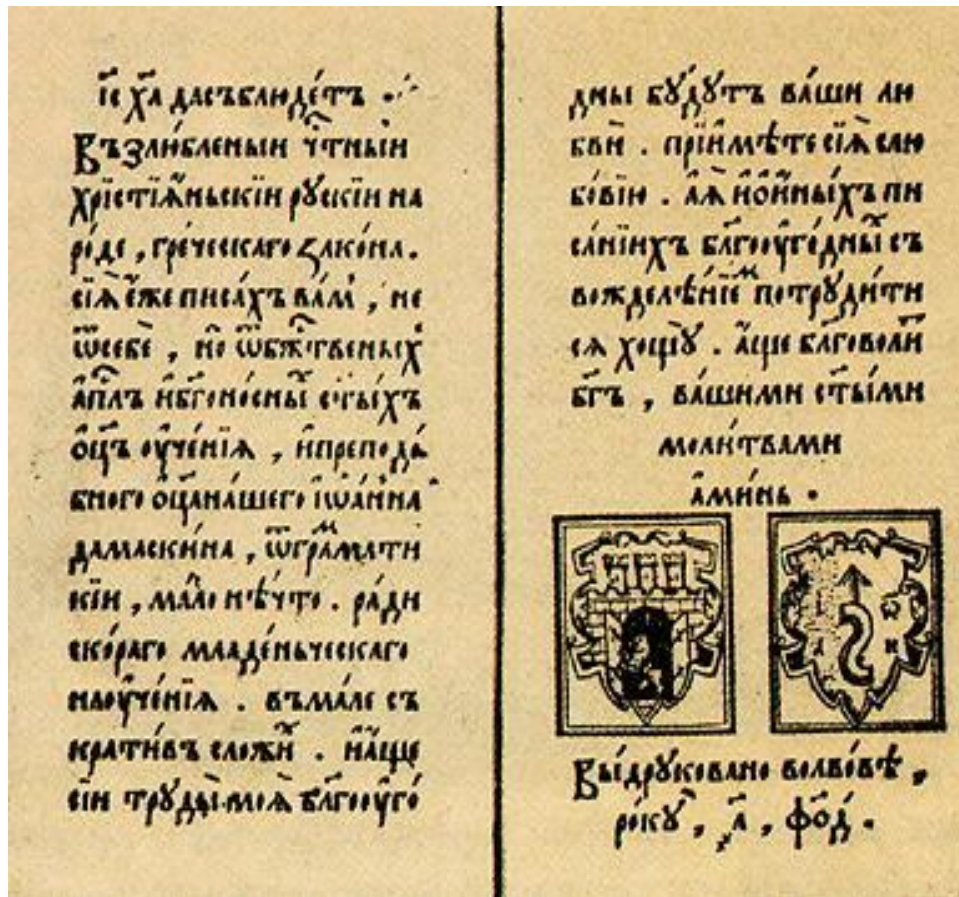 і҃с х҃а дасъблюдетъ .
Възлю́бленыи чⷭ҇тныи
хрїстїѧ́ньскїи рускїи на
ро́де , гре́ческаго зако́на .
сїѧ̀ е҆́же писа́хъ ва́м̾ , не
ѿсебѐ , но ѿбжⷭ҇твеныⷯ
а҆пⷭ҇лъ и҆бг҃оно́сныⷯ ст҃ы́хъ
ѻ҆ц҃ъ ᲂу҆че́нїѧ , и҆препода́
бного ѻ҆ц҃ана́шего і҆ѡа́нна
дамаски́на , ѿграⷨма́ти
кїи , ма́ло нѣ́что . ра́ди
ско́раго младе́ньческаго
наᲂуче́нїѧ . въма́ле съ
крати́въ сложиⷯ . и҆а҆́ще
сїи труды̀ моѧ̀ бл҃гоᲂуго́
дны бꙋ́дꙋтъ ва́ши лю
бви̂ . прїи҆мѣ́те сїѧ̀ слю
бо́вїю . а҆ѧ҆́ и҆ѻ҆и҆ны́хъ пи
са́нїихъ бл҃гоᲂуго́дныⷯ съ
вожделѣ́нїеⷨ потрꙋди́ти
сѧ хощꙋ̀ . а҆́ще бл҃говоли́т
бг҃ъ , ва́шими ст҃ы́ми
моли́твами
а҆ми́нь .
Вы́дрꙋковано волво́вѣ ,
ро́кꙋ , ҂а҃ , фо҃д .